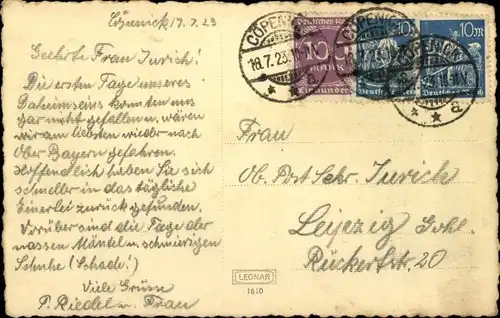 Cöpenick 17.7.23
Geehrte Frau Jurich!
Die ersten Tage unseres
Daheimseins konnten uns
gar nicht gefallen u. wären
wir am liebsten wieder nach
Ober Bayern gefahren.
Hoffendlich haben Sie sich
schneller in das tägliche
Einerlei zurück gefunden.
Vorüber sind die Tage der
nassen Mäntel u. schmierigen
Schuhe (Schade!)
Viele Grüsse
P. Riedel u. Frau
CÖPENICK
18.7.23
Deutsches Reich
100
MARK
Einhundert
10
CÖPENICK
10M
a
Frau
Ob. Post Sekr. Jurich
Leipzig Gohl.
Rückertstr. 20
LEONAR
1610